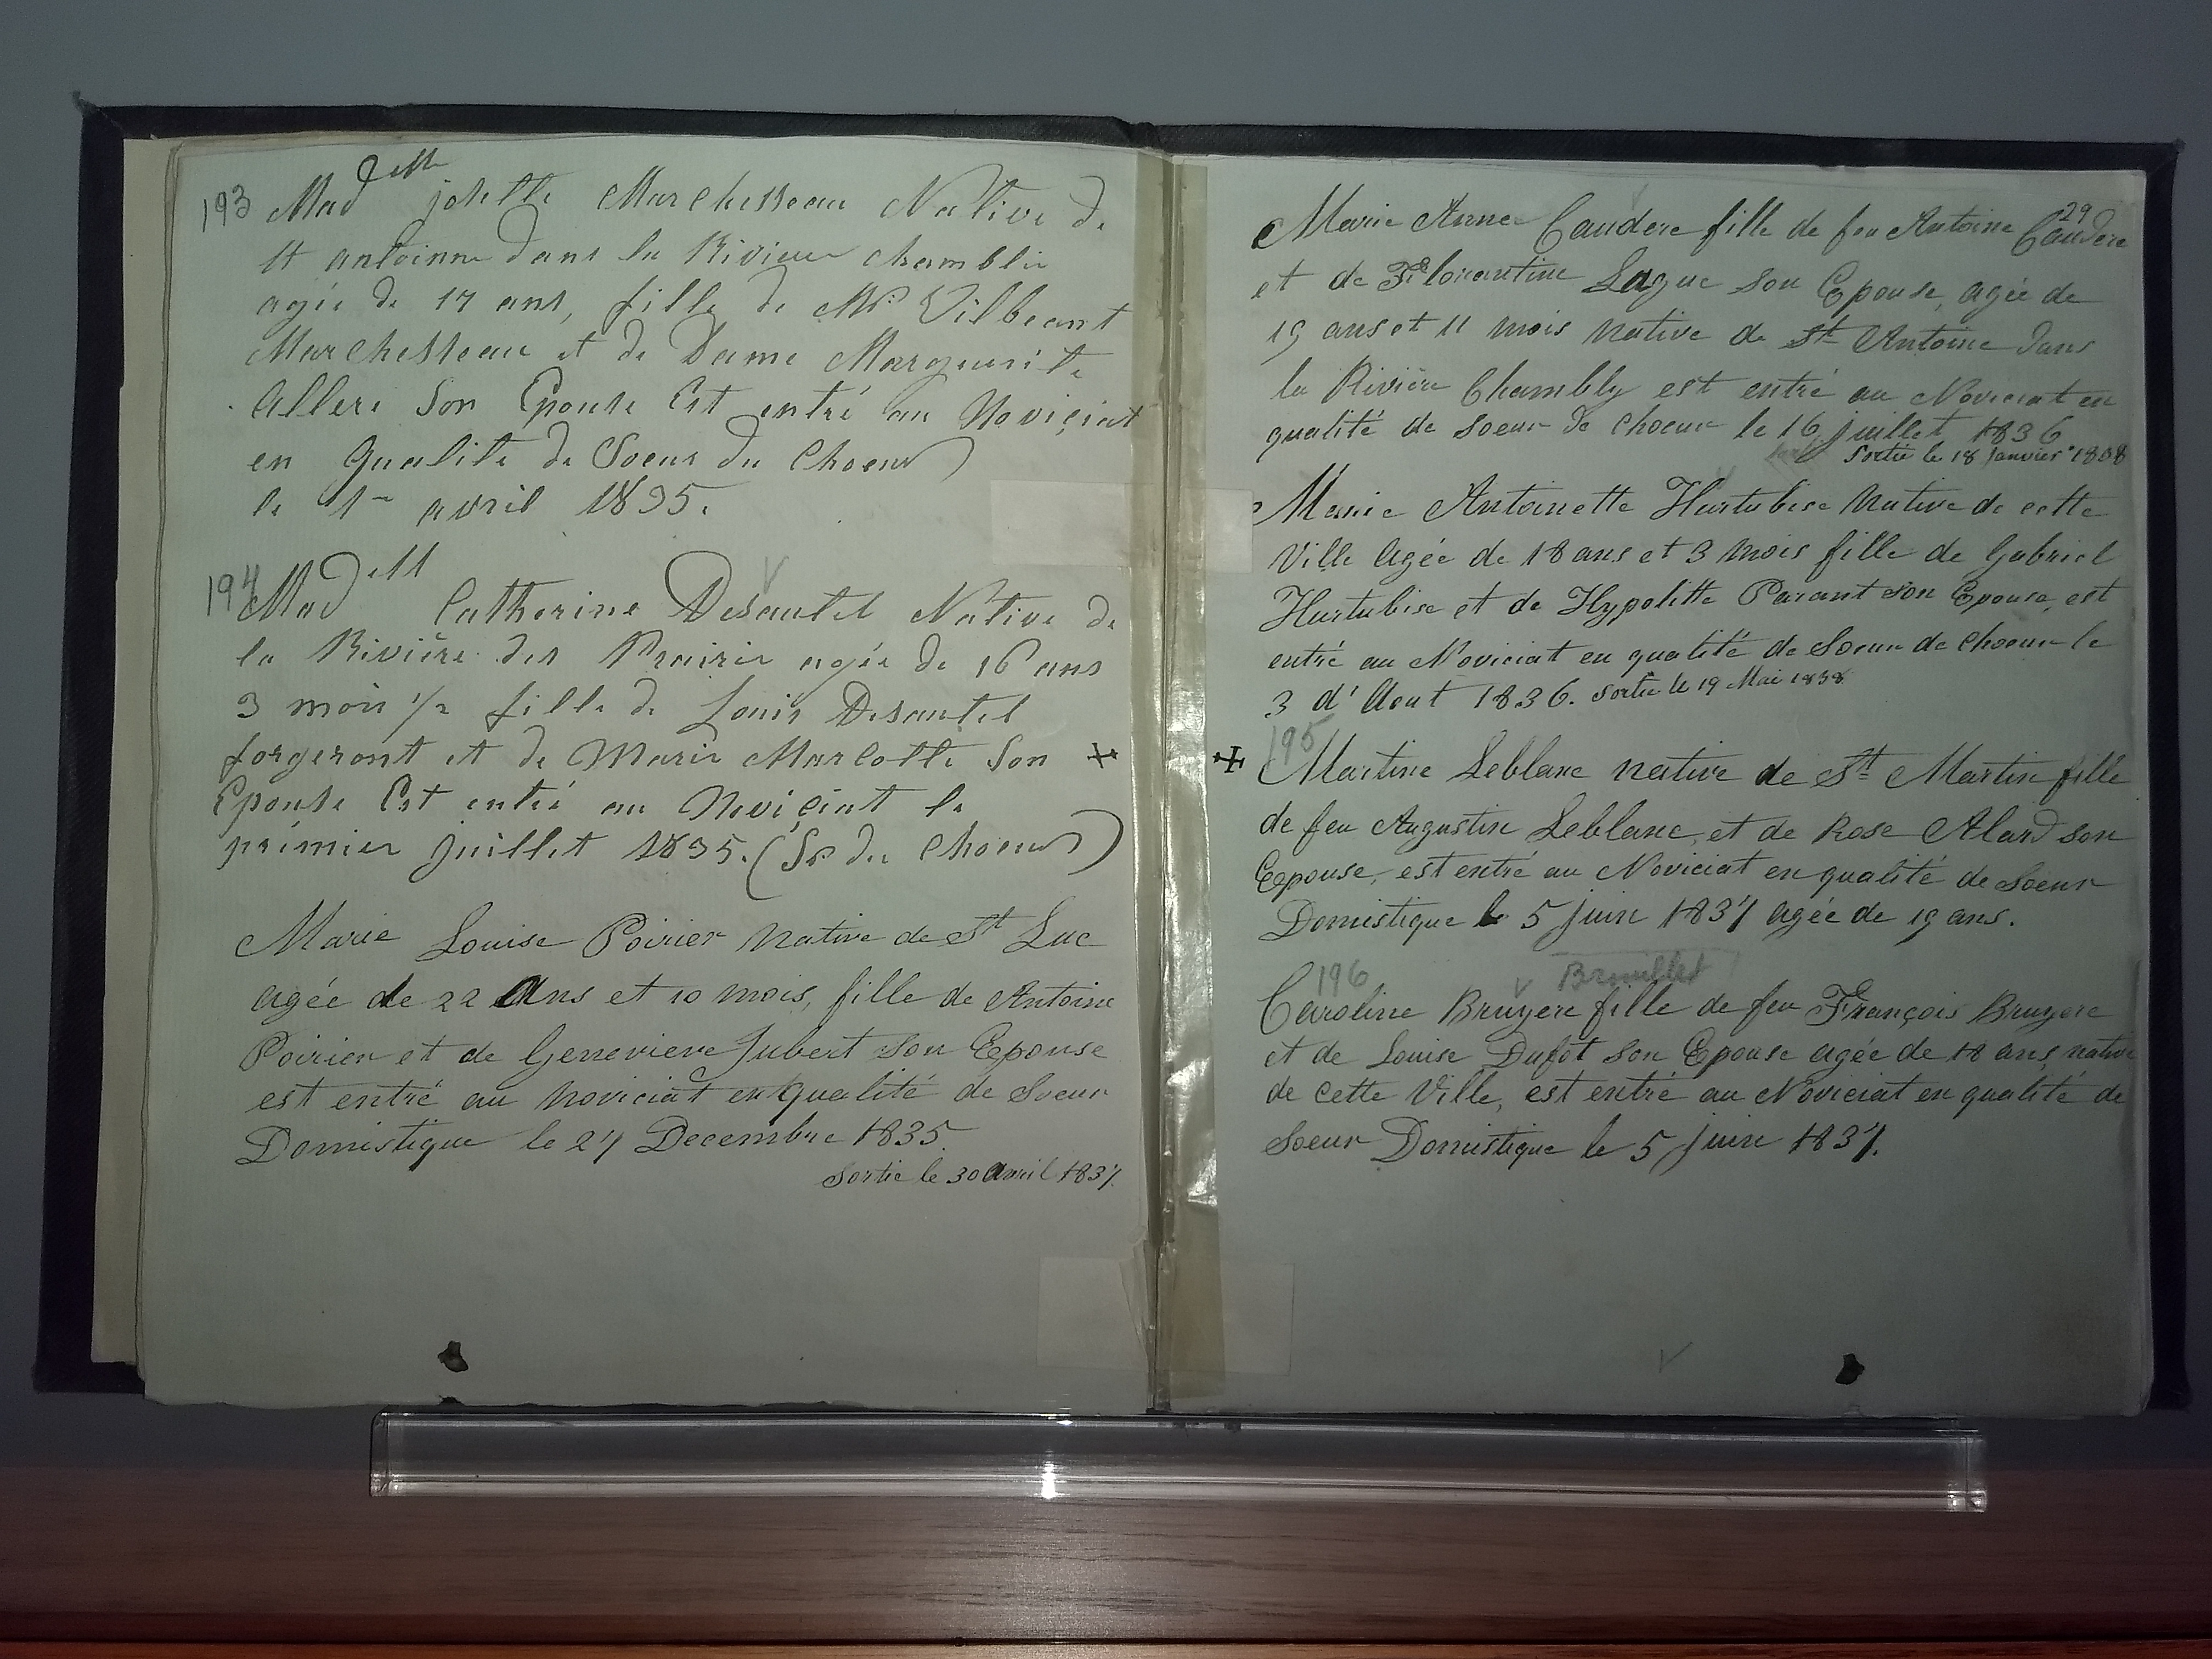 193 Mad.elle josette Marchesseau Native de
St antoinne dans la Riviere chamblie
agée de 17 ans, fille de Mr Vilbeant
Marchesseau et de Dame Marguerite
Allere Son Epouse Est entré au Noviçiat
en Qualité de Soeur du Choeur
le 1er avril 1835.
194 Madell Catherine Desautel Native de
la Rivière des Prairie agée de 16 ans
3 mois 1/2 fille de Louis Desautel
forgeront et de Marie Marcotte Son
Epouse Est entré au Noviçiat le
premier juillet 1835. (Sr du Choeur)
Marie Louise Poirier native de St Luc
agée de 22 Ans et 10 mois, fille de Antoine
Poirier et de Genevieve Jubert son Epouse
est entré au noviciat en qualité de Soeur
Domistique le 27 Decembre 1835.
Sortie le 30 Avril 1837.
29
Marie Anne Caudere fille de feu Antoine Caudere
et de Florantine Lague son Epouse, agée de
19 ans et 11 mois native de St Antoine dans
la Rivière Chambly est entré au Noviciat en
qualité de soeur de choeur le 16 juillet 1836
Sortie le 18 Janvier 1838
Marie Antoinette Hurtubise Native de cette
Ville agée de 18 ans et 3 mois fille de Gabriel
Hurtubise et de Hypolitte Parant son Epouse, est
entré au Noviciat en qualité de Soeur de choeur le
3 d'Aout 1836. Sortie le 19 Mai 1838
195
Martine Leblanc native de St Martin fille
de feu Augustin Leblanc, et de Rose Alard son
Epouse, est entré au Noviciat en qualité de Soeur
Domistique le 5 juin 1837 agée de 19 ans.
196 Brouillet
Caroline Bruyere fille de feu François Bruyere
et de Louise Dufot son Epouse agée de 18 ans, native
de cette Ville, est entré au Noviciat en qualité de
Soeur Domistique le 5 juin 1837.